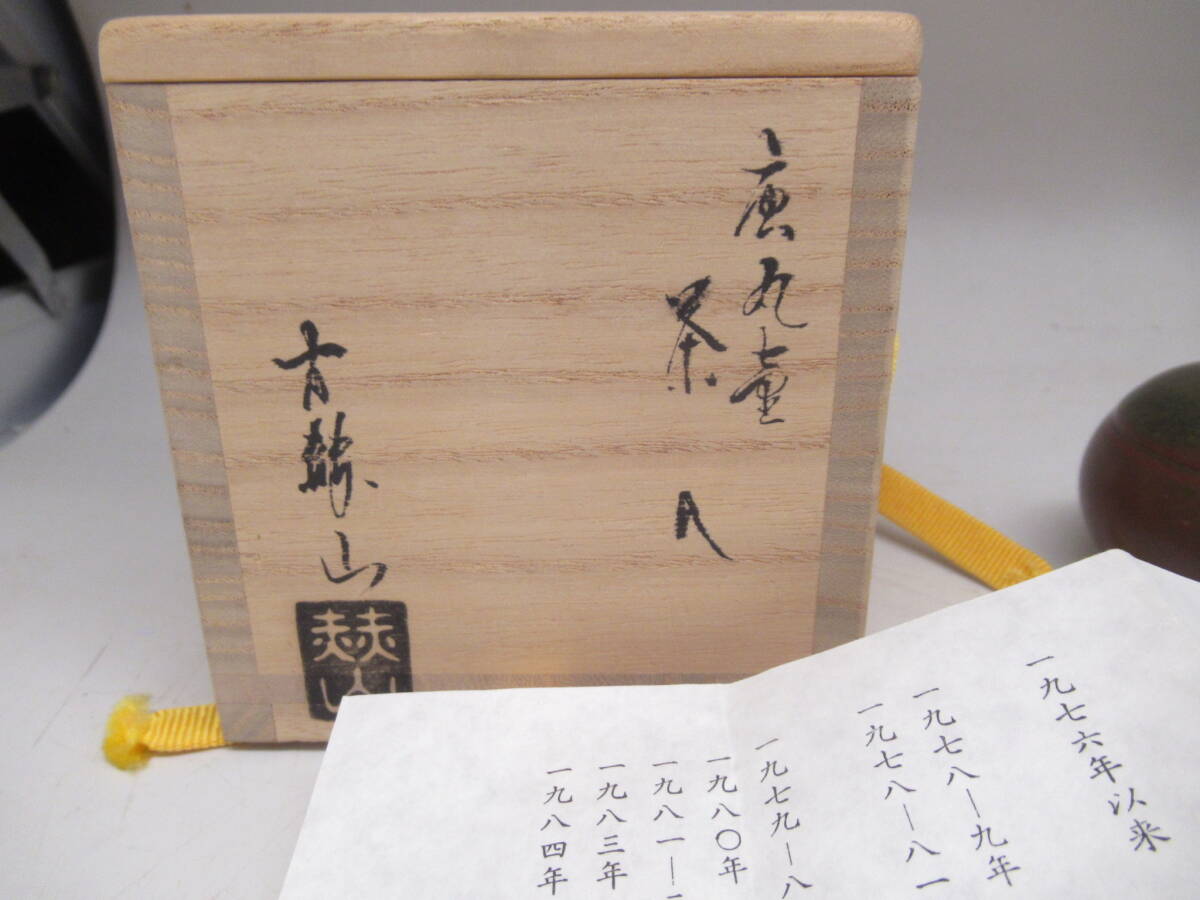 唐丸壷
茶入
赫山
一九七六年以来
一九七八―九年
一九七八―八一
一九七九―八
一九八〇年
一九八一―
一九八三年
一九八四年